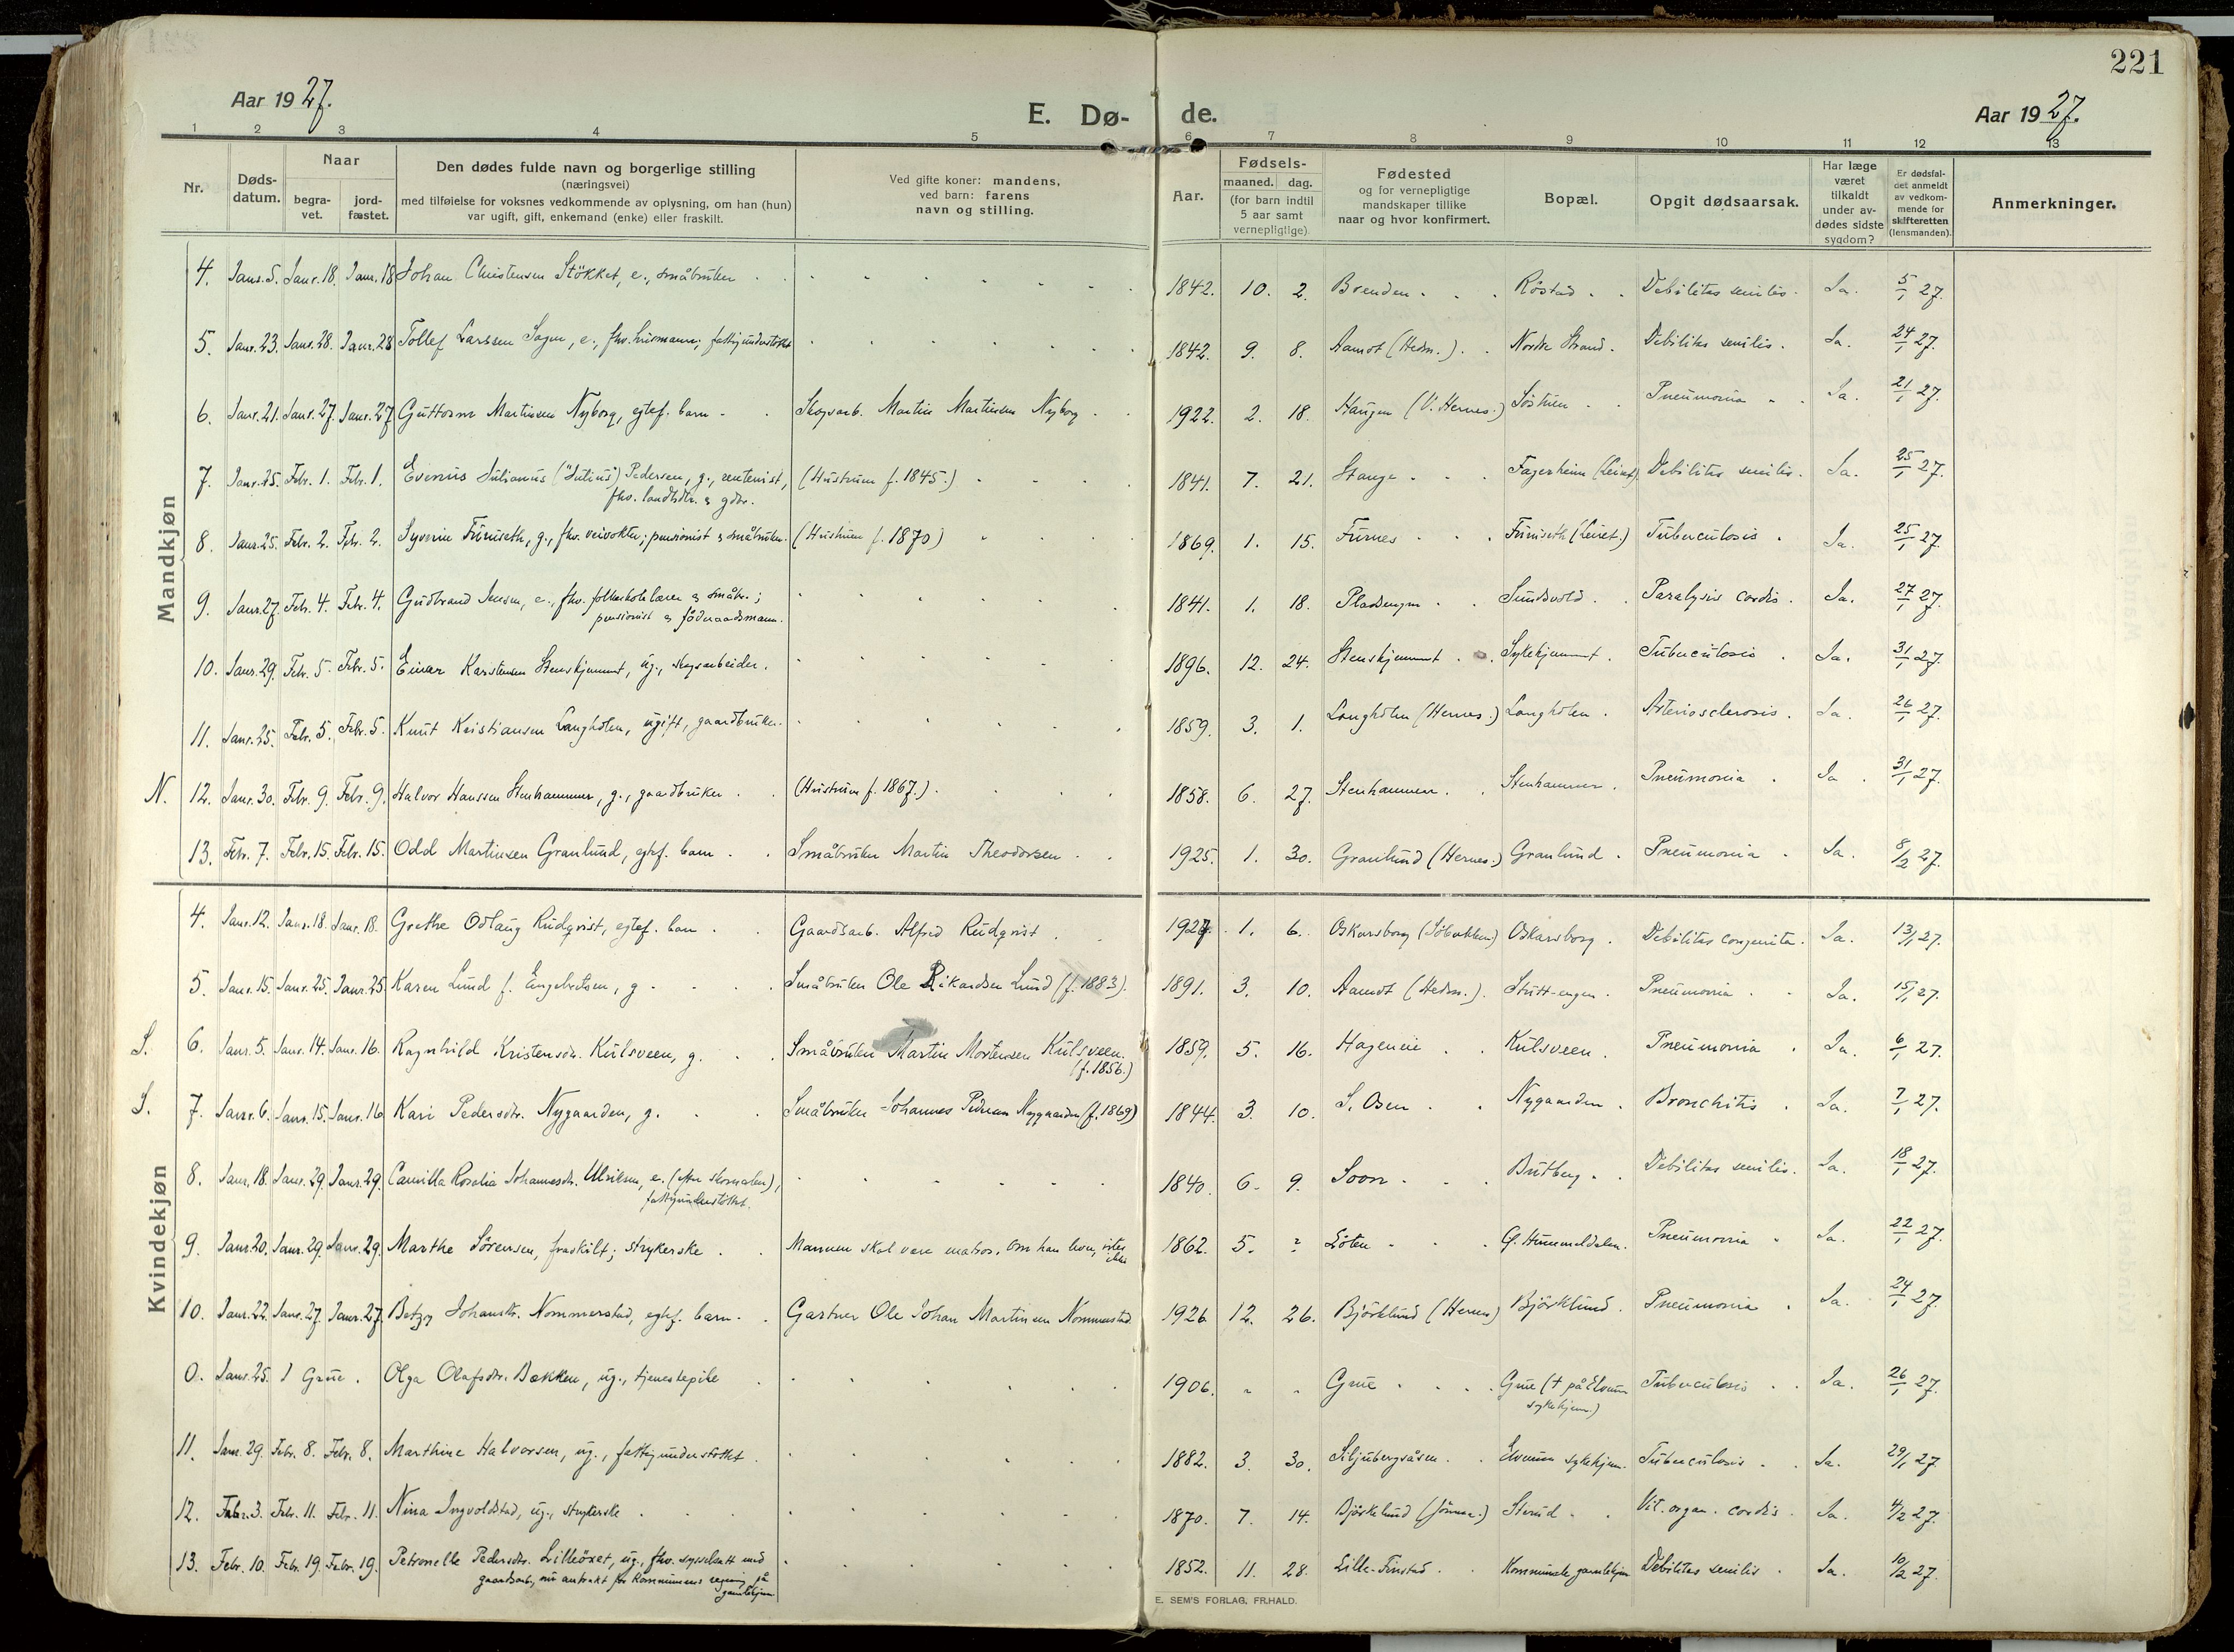 221
Aar 1927.
E. Dø- de.
Aar 1927.
1 2 3 4 5 6 7 8 9 10 11 12 13
Nr.
Døds-
datum.
Naar
begra-
vet.
jord-
fæstet.
Den dødes fulde navn og borgerlige stilling
(næringsvei)
med tilføielse for voksnes vedkommende av oplysning, om han (hun)
var ugift, gift, enkemand (enke) eller fraskilt.
Ved gifte koner: mandens,
ved barn: farens
navn og stilling.
Aar.
Fødsels-
maaned. dag.
(for barn indtil
5 aar samt
vernepligtige)
Fødested
og for vernepligtige
mandskaper tillike
naar og hvor konfirmert.
Bopæl.
Opgit dødsaarsak.
Har læge
været
tilkaldt
under av-
dødes sidste
sygdom?
Er dødsfal-
det anmeldt
av vedkom-
mende for
skifteretten
(lensmanden).
Anmerkninger.
Mandkjøn
4. Janr. 5. Janr. 18. Janr. 18 Johan Christensen Stökket, e., småbruker 1842. 10. 2. Brenden Röstad Debilitas senilis. Ja. 5/1 27.
5. Janr. 23. Janr. 28. Janr. 28 Tollef Larssen Sagen, e., fhv. husmann; fattigunderstöttet 1842. 9. 8. Aamot (Hedm.) Nordre Strand. Debilitas senilis. Ja. 24/1 27.
6. Janr. 21. Janr. 27. Janr. 27 Guttorm Martinsen Nyborg, egtef. barn Skogsarb. Martin Martinsen Nyborg 1922. 2. 18. Haugen (V. Hernes.) Pneumonia Ja. 21/1 27.
7. Janr. 25. Febr. 1. Febr. 1. Evenius Julianus ("Julius") Pedersen, g., rentenist,
fhv. landhdlr. & gdbr. (Hustruen f. 1845.) 1841. 7. 21. Stange Fagerheim (Leiret) Debilitas senilis. Ja. 25/1 27.
8. Janr. 25. Febr. 2. Febr. 2. Syverin Furuseth, g., fhv. veivokter; pensionist & småbruker. (Hustruen f. 1870) 1869. 1. 15. Furnes Furuseth (Leiret.) Tuberculosis. Ja. 25/1 27.
9. Janr. 27. Febr. 4. Febr. 4. Gudbrand Jensen, e., fhv. folkeskolelærer & småbr.;
pensionist & föderaadsmann. 1841. 1. 18. Pladsengen Sundsvold Paralysis cordis. Ja. 27/1 27.
10. Janr. 29. Febr. 5. Febr. 5. Einar Karstensen Stenskjemmet, ug., skogsarbeider. 1896. 12. 24. Stenskjemmet Sykehjemmet. Tuberculosis Ja. 31/1 27.
11. Janr. 25. Febr. 5. Febr. 5. Knut Kristiansen Langholen, ugift, gaardbruker. 1859. 3. 1. Langholen (Hernes.) Langholen. Arteriosclerosis. Ja. 26/1 27.
N. 12. Janr. 30. Febr. 9. Febr. 9. Halvor Hanssen Stenhammer, g., gaardbruker (Hustruen f. 1867.) 1858. 6. 27. Stenhammer. Stenhammer. Pneumonia. Ja. 31/1 27.
13. Febr. 7. Febr. 15. Febr. 15. Odd Martinsen Granlund, egtef. barn Småbruker Martin Theodorsen 1925. 1. 30. Granlund (Hernes.) Granlund. Pneumonia Ja. 8/2 27.
Kvindekjøn
4. Janr. 12. Janr. 18. Janr. 18. Grethe Odlaug Rudqvist, egtef. barn Gaardsarb. Alfred Rudqvist 1927. 1. 6. Oskarsborg Oskarsborg. Debilitas congenita. Ja. 13/1 27.
5. Janr. 15. Janr. 25. Janr. 25. Karen Lund f. Engebretsen, g Småbruker Ole Rikardsen Lund (f. 1883). 1891. 3. 10. Aamot (Hedm.). Strütt-engen. Pneumonia Ja. 15/1 27.
S. 6. Janr. 5. Janr. 14. Janr. 16. Ragnhild Kristensdr. Kulsveen, g. Småbruker Martin Mortensen Kulsveen.
(f. 1856.) 1859. 5. 16. Hageneie Kulsveen. Pneumonia. Ja. 6/1 27.
S. 7. Janr. 6. Janr. 15. Janr. 16 Kari Pedersdtr. Nygaarden, g. Småbruker Johannes Pedersen Nygaarden (f. 1869) 1844. 3. 10. S. Osen Nygaarden. Bronchitis Ja. 7/1 27.
8. Janr. 18. Janr. 29. Janr. 29. Camilla Rosalia Johannesdr. Ulriksen, e. (efter skomaker),
fattigunderstöttet. 1840. 6. 9. Soon Butberg Debilitas senilis. Ja. 18/1 27.
9. Janr. 20. Janr. 29. Janr. 29. Marthe Sörensen, fraskilt; strykerske Mannen skal være matros. Om han lever, vites
ikke 1862. 5. ? Löten G. Hummeldalen. Pneumonia Ja. 22/1 27.
10. Janr. 22. Janr. 27. Janr. 27. Betzy Johansdr. Nommerstad, egtef. barn. Gartner Ole Johan Martinsen Nommerstad. 1926 12. 26. Björklund (Hernes) Björklund. Pneumonia Ja. 24/1 27.
0. Janr. 25. I Grue. Olga Olafsdtr. Bækken, ug., tjenestepike 1906. " " Grue Grue († på Elverum
sykehjem.) Tuberculosis Ja. 26/1 27.
11. Janr. 29. Febr. 8. Febr. 8. Marthine Halvorsen, ug., fattigunderstöttet. 1882. 3. 30. Siljubergsåsen Elverum sykehjem. Tuberculosis Ja. 29/1 27.
12. Febr. 3. Febr. 11. Febr. 11. Nina Ingvoldstad, ug., strykerske 1870. 7. 14. Björkelund Sterud Vit. organ. cordis Ja. 4/2 27.
13. Febr. 10. Febr. 19. Febr. 19. Petronelle Pedersdtr. Lilleöset, ug., fhv. sysselsatt med
gaardsarb., nu antatt for kommunens regning på
gamlehjem 1852. 11. 28. Lille-Finstad Kommunale gamlehjem Debilitas senilis Ja. 10/2 27.
E. SEM'S FORLAG, FR.HALD.